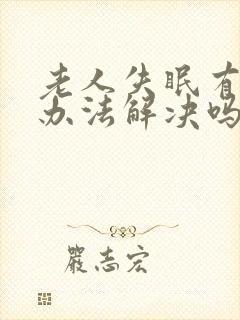 老人失眠有
办法解决吗
严志宏